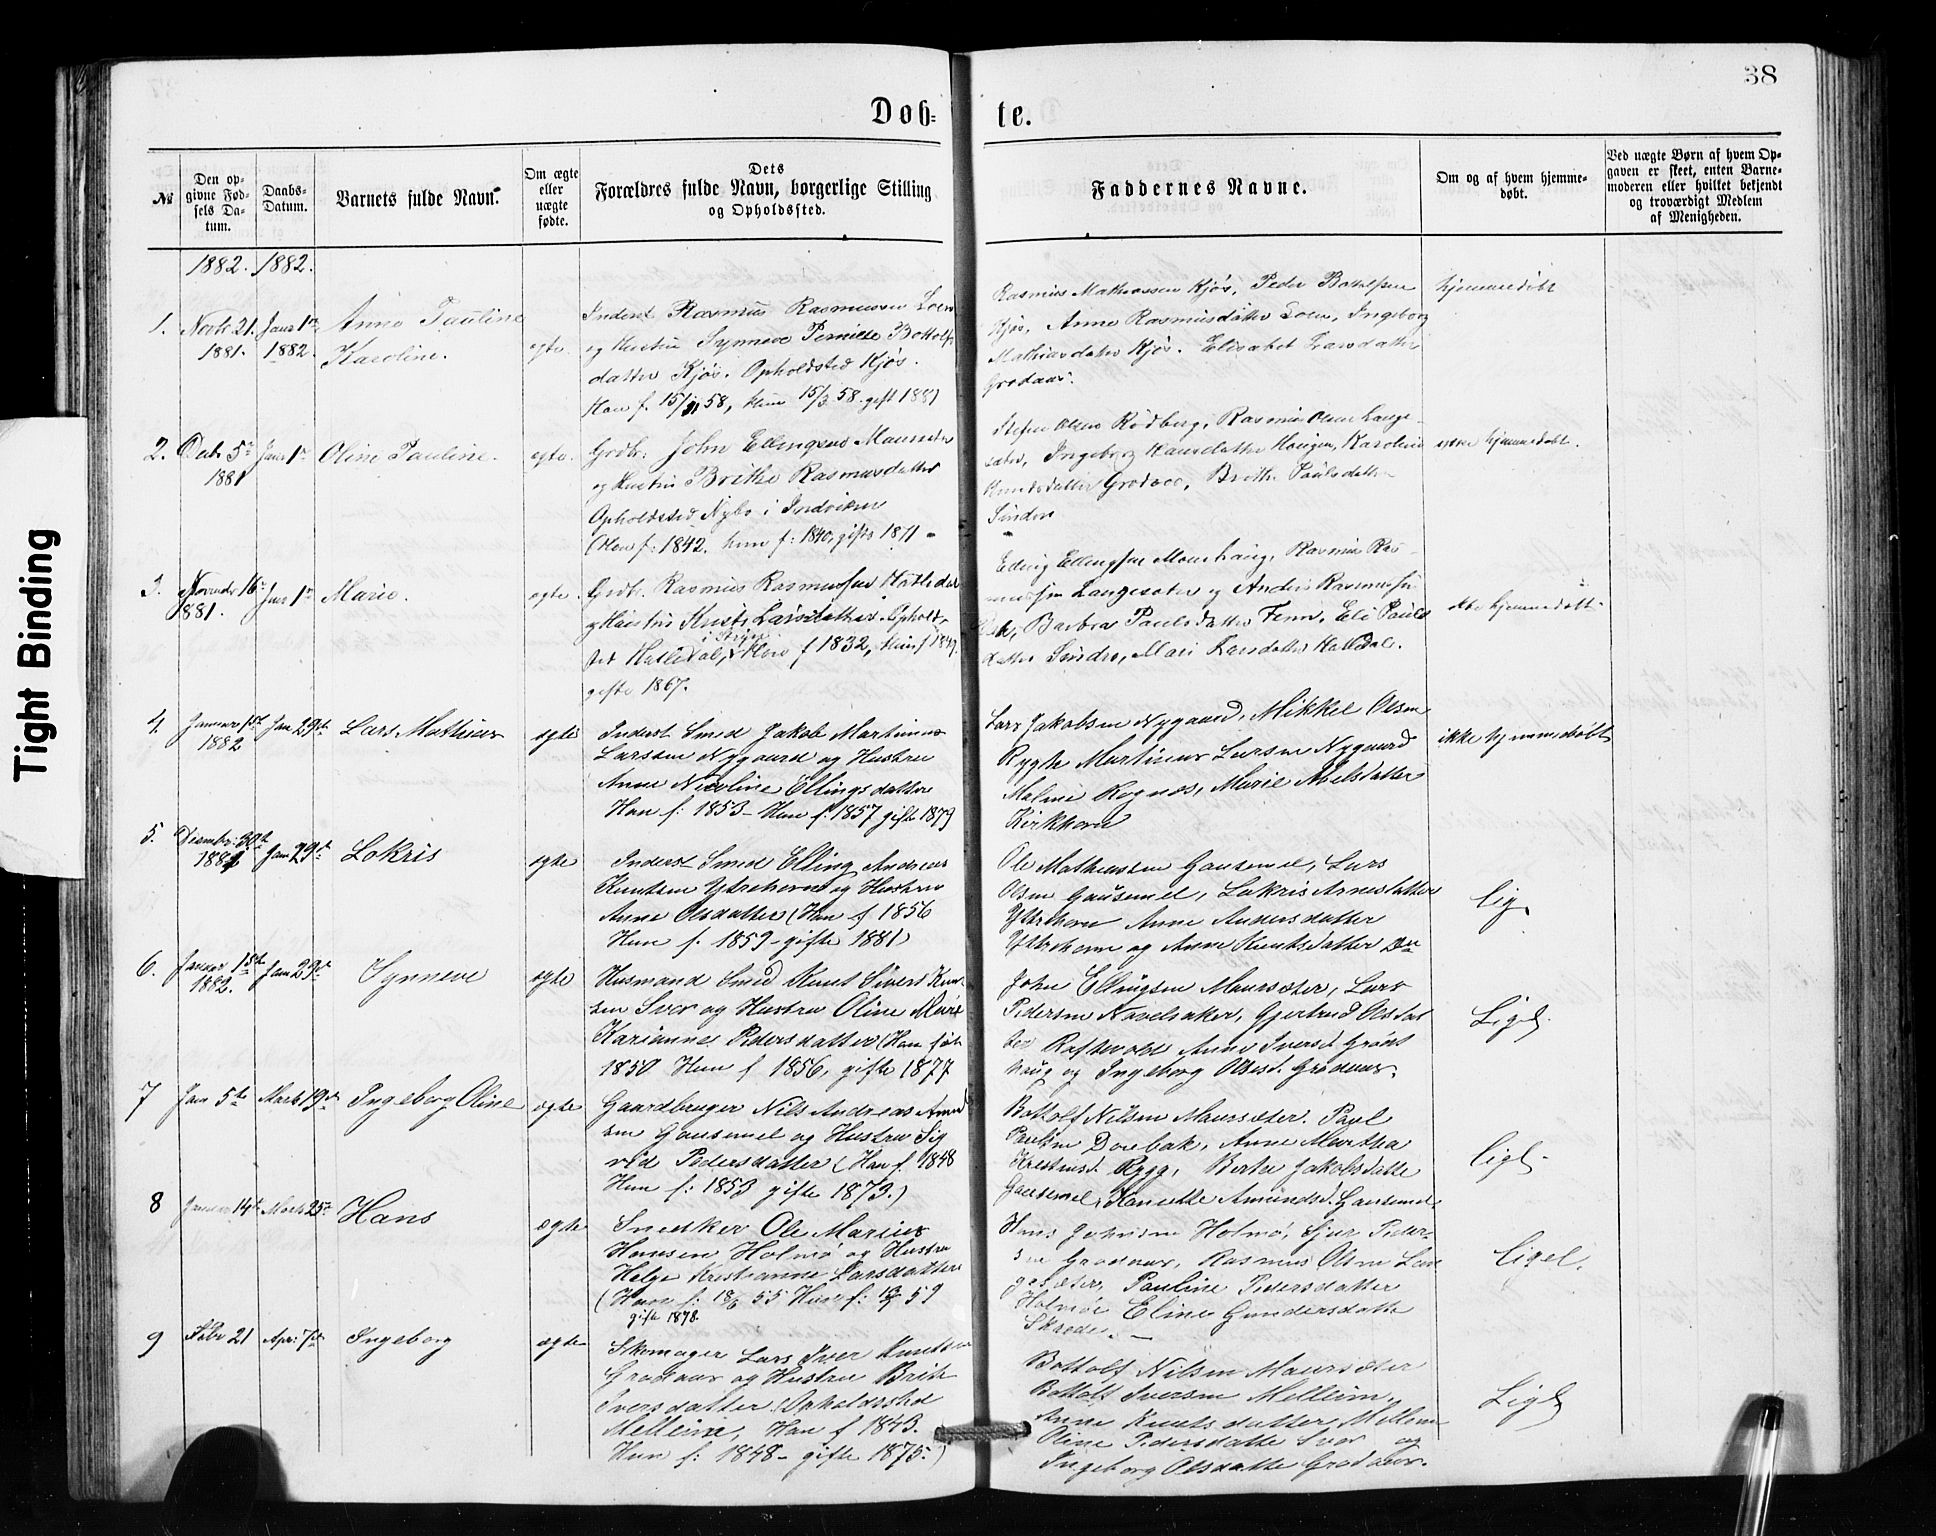 38
Døb-
te.
№
Den op-
givne Fød-
sels Da-
tum.
Daabs-
Datum.
Barnets fulde Navn.
Om ægte
eller
uægte
fødte.
Dets
Forældres fulde Navn, borgerlige Stilling
og Opholdssted.
Faddernes Navne.
Om og af hvem hjemme-
døbt.
Ved uægte Børn af hvem Op-
gaven er skeet, enten Barne-
moderen eller hvilket bekjendt
og troværdigt Medlem
af Menigheden.
1882. 1882.
1.
21.
1881.
1882.
Anne Pauline
Karoline.
Inderst Rasmus Rasmussen Loen
og Hustru Synneve Pernille Bottolfs
datter Kjøs. Opholdsted Kjøs.
Han f. 58, Hun 15/3 58. gift 1881)
Rasmus Mathiassen Kjøs, Peder Bottolfsen
Kjøs, Anne Rasmusdatter Loen, Ingeborg
Mathiasdatter Kjøs. Elisabet Larsdatter
Grodaas.
hjemmedøbt
2.
1881
Oline Pauline.
Gdbr. John Ellingsen Maurseter
og Hustru Brithe Rasmusdatter
Opholdsted Nybø i Indviken
(Han f: 1842. hun f: 1840. gifte 1871
Olsen Rødberg, Rasmus Olsen Lange-
sæter, Ingeborg Hansdatter Haugen, Karoline
Knudsdatter Grodaas, Brithe Paulsdatter
Sindre
hjemmedøbt.
3.
16
1881.
Marie.
Gdbr. Rasmus Rasmussen Hatledal
og Hustru Larsdatter Ophold-
i Stryn
sted Hatledal, Han f 1832, Hun f 1849.
gifte 1867.
Elling Ellingsen Maurhaug, Rasmus Ras-
mussen Langesæter og Anders Rasmussen
Barbra Paulsdatter Tenn, Eli Pauls
datter Sindre, Mari Larsdatter Hatledal.
ikke hjemmedøbt
4.
Januar 1st
1882
Jan 29de
Lars Mathias
ægte
Inderst Smed Jakob Martinus
Larssen Nygaard og Hustru
Anne Nicoline Ellingsdatter
Han f: 1853 - Hun f: 1857 gifte 1879
Lars Jakobsen Nygaard, Mikkel Olsen
Martinus Larsen Nygaard
Malene Rognes, Marie Nielsdatter
Kirkhorn
ikke hjemmedøbt
5.
30te
1881
Jan 29de
Lokris
ægte
Inderst Smed Elling Andreas
Knutsen Ytrehorn og Hustru
Anne Olsdatter (Han f 1856
Hun f. 1859 - gifte 1881)
Ole Mathiassen Gausemel, Lars
Olsen Gausemel, Lokris Arnesdatter
Ytrehorn Anne Andersdatter
Ytrehorn og Anne Knutsdatter Do
lig.
6.
Januar 1st
1882.
Jan 29de
Synneve
ægte
Husmand Smed Knut Sivert Knut-
sen Svor og Hustru Oline Marie
Karianne Pedersdatter (Han født
1850 Hun f 1856, gifte 1877
John Ellingsen Maurseter, Lars
Pedersen Navelsaker, Gjertrud Olsdat
ter Raftevold Anne Iversd. Grønt
haug og Ingeborg Olsd. Grodaas.
Ligel.
7
Jan 5te
Ingeborg Oline
ægte
Gaardbruger Nils Andreas Amund
sen Gausemel og Hustru Sig
rid Pedersdatter (Han f. 1848
Hun f: 1853 gifte 1873.)
Bottolf Nilsen Maurseter. Paul
Paulsen Dovbak, Anne Martha
Kristensd. Rygg, Berte Jakobsdatter
Gausemel, Hansine Amundsd. Gausemel.
Ligel.
8
Januar 14de
25de
Hans
ægte
Snedker Ole Marius
Hansen Holmø og Hustru
Helge Kristianne Larsdatter
(Han f: 18/6 55 Hun f: 59
gifte 1878.
Hans Johnsen Holmø, Sjur Peder-
sen Grodaas, Rasmus Olsen Lan
gesæter, Pauline Pedersdatter
Holmøe Eline Gundersdatter
Skrede. —
Ligel.
9
Febr 21
Apr: 7de
Ingeborg
ægte
Skomager Lars Iver Knutsen
Grodaas og Hustru Brit
Iversdatter (Opholdssted
Melleim, Han f 1843.
Hun f: 1848 - gifte 1875.)
Bottolf Nilsen Maurseter
Bottolf Iversen Melleim,
Anne Knutsdatter Melleim
Oline Pedersdatter Svor og
Ingeborg Olsdatter Grodaas.
Ligel
Tight Binding